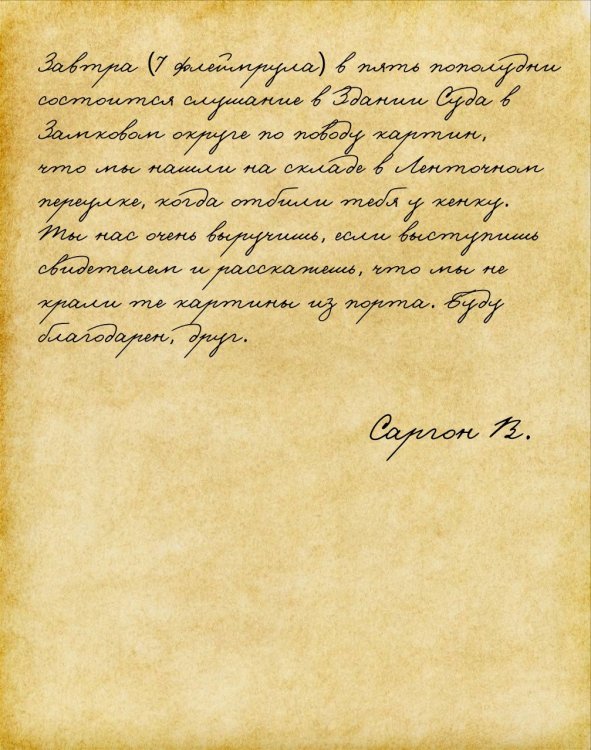 Завтра (7 флеймрула) в пять пополудни
состоится слушание в Здании Суда в
Замковом округе по поводу картин,
что мы нашли на складе в Ленточном
переулке, когда отбили тебя у кенку.
Ты нас очень выручишь, если выступишь
свидетелем и расскажешь, что мы не
крали те картины из порта. Буду
благодарен, друг.
Саргон В.